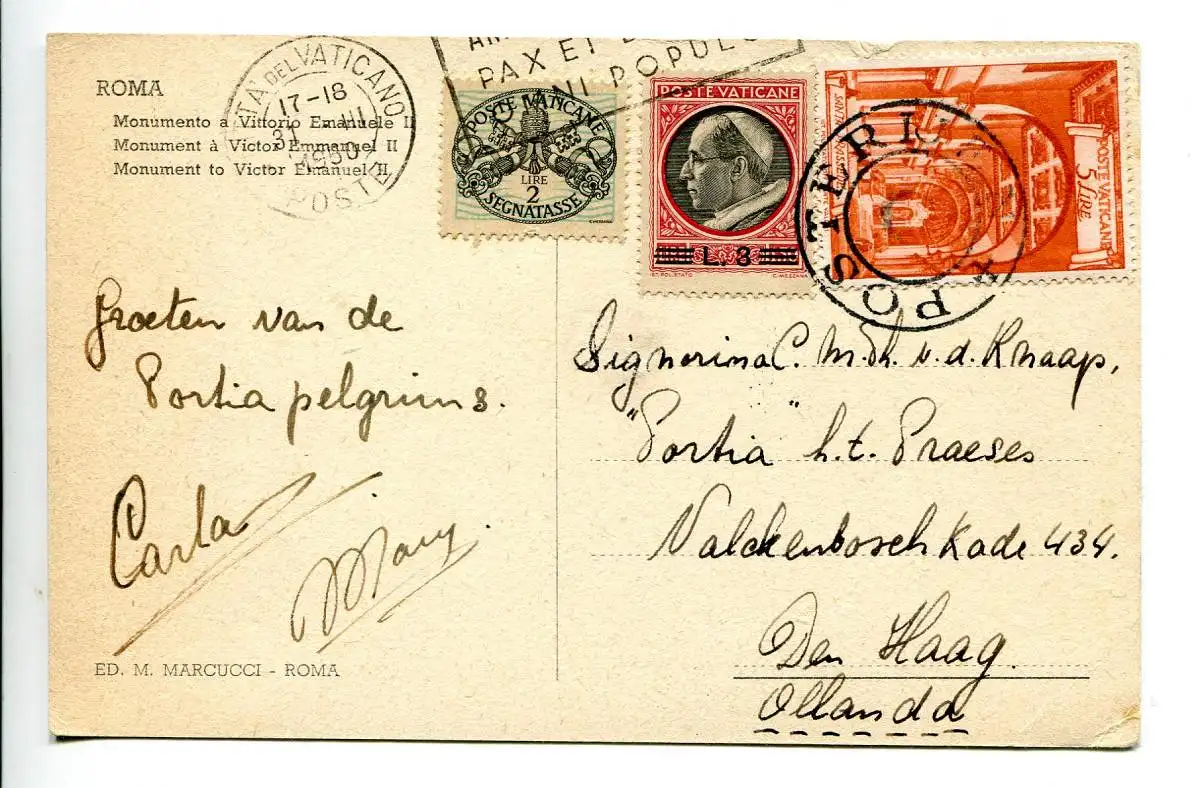 ROMA
Monumento a Vittorio Emanuele II
Monument à Victor Emmanuel II
Monument to Victor Emanuel II
CITTÀ DEL VATICANO
17-18
1950
POSTE
PAX ET
POPULO
POSTE VATICANE
LIRE
2
SEGNATASSE
POSTE VATICANE
L. 3
IST. POL. STATO
C. MEZZANA
POSTE VATICANE
5 LIRE
POSTE
Groeten van de
Portia pelgrims.
Carla
Mary.
Signorina C. M. Th. v. d. Knaap,
"Portia" h.t. Praeses
Valckenboschkade 434.
Den Haag.
Ollanda
ED. M. MARCUCCI - ROMA